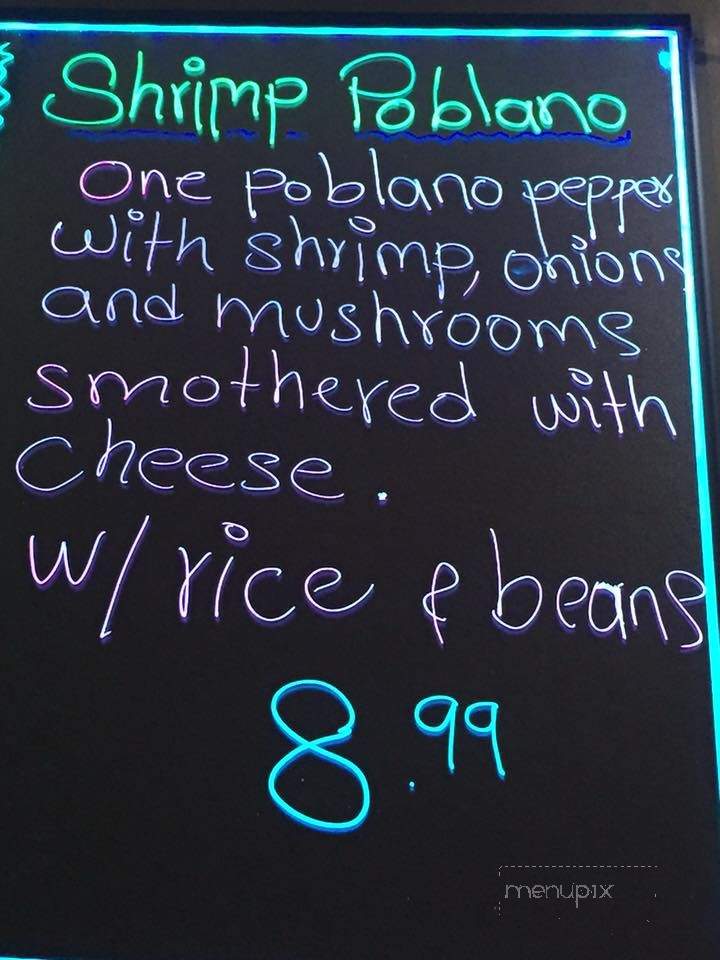 Shrimp Poblano
One poblano pepper
with shrimp, onions
and mushrooms
smothered with
cheese.
w/ rice & beans
8.99
menupix